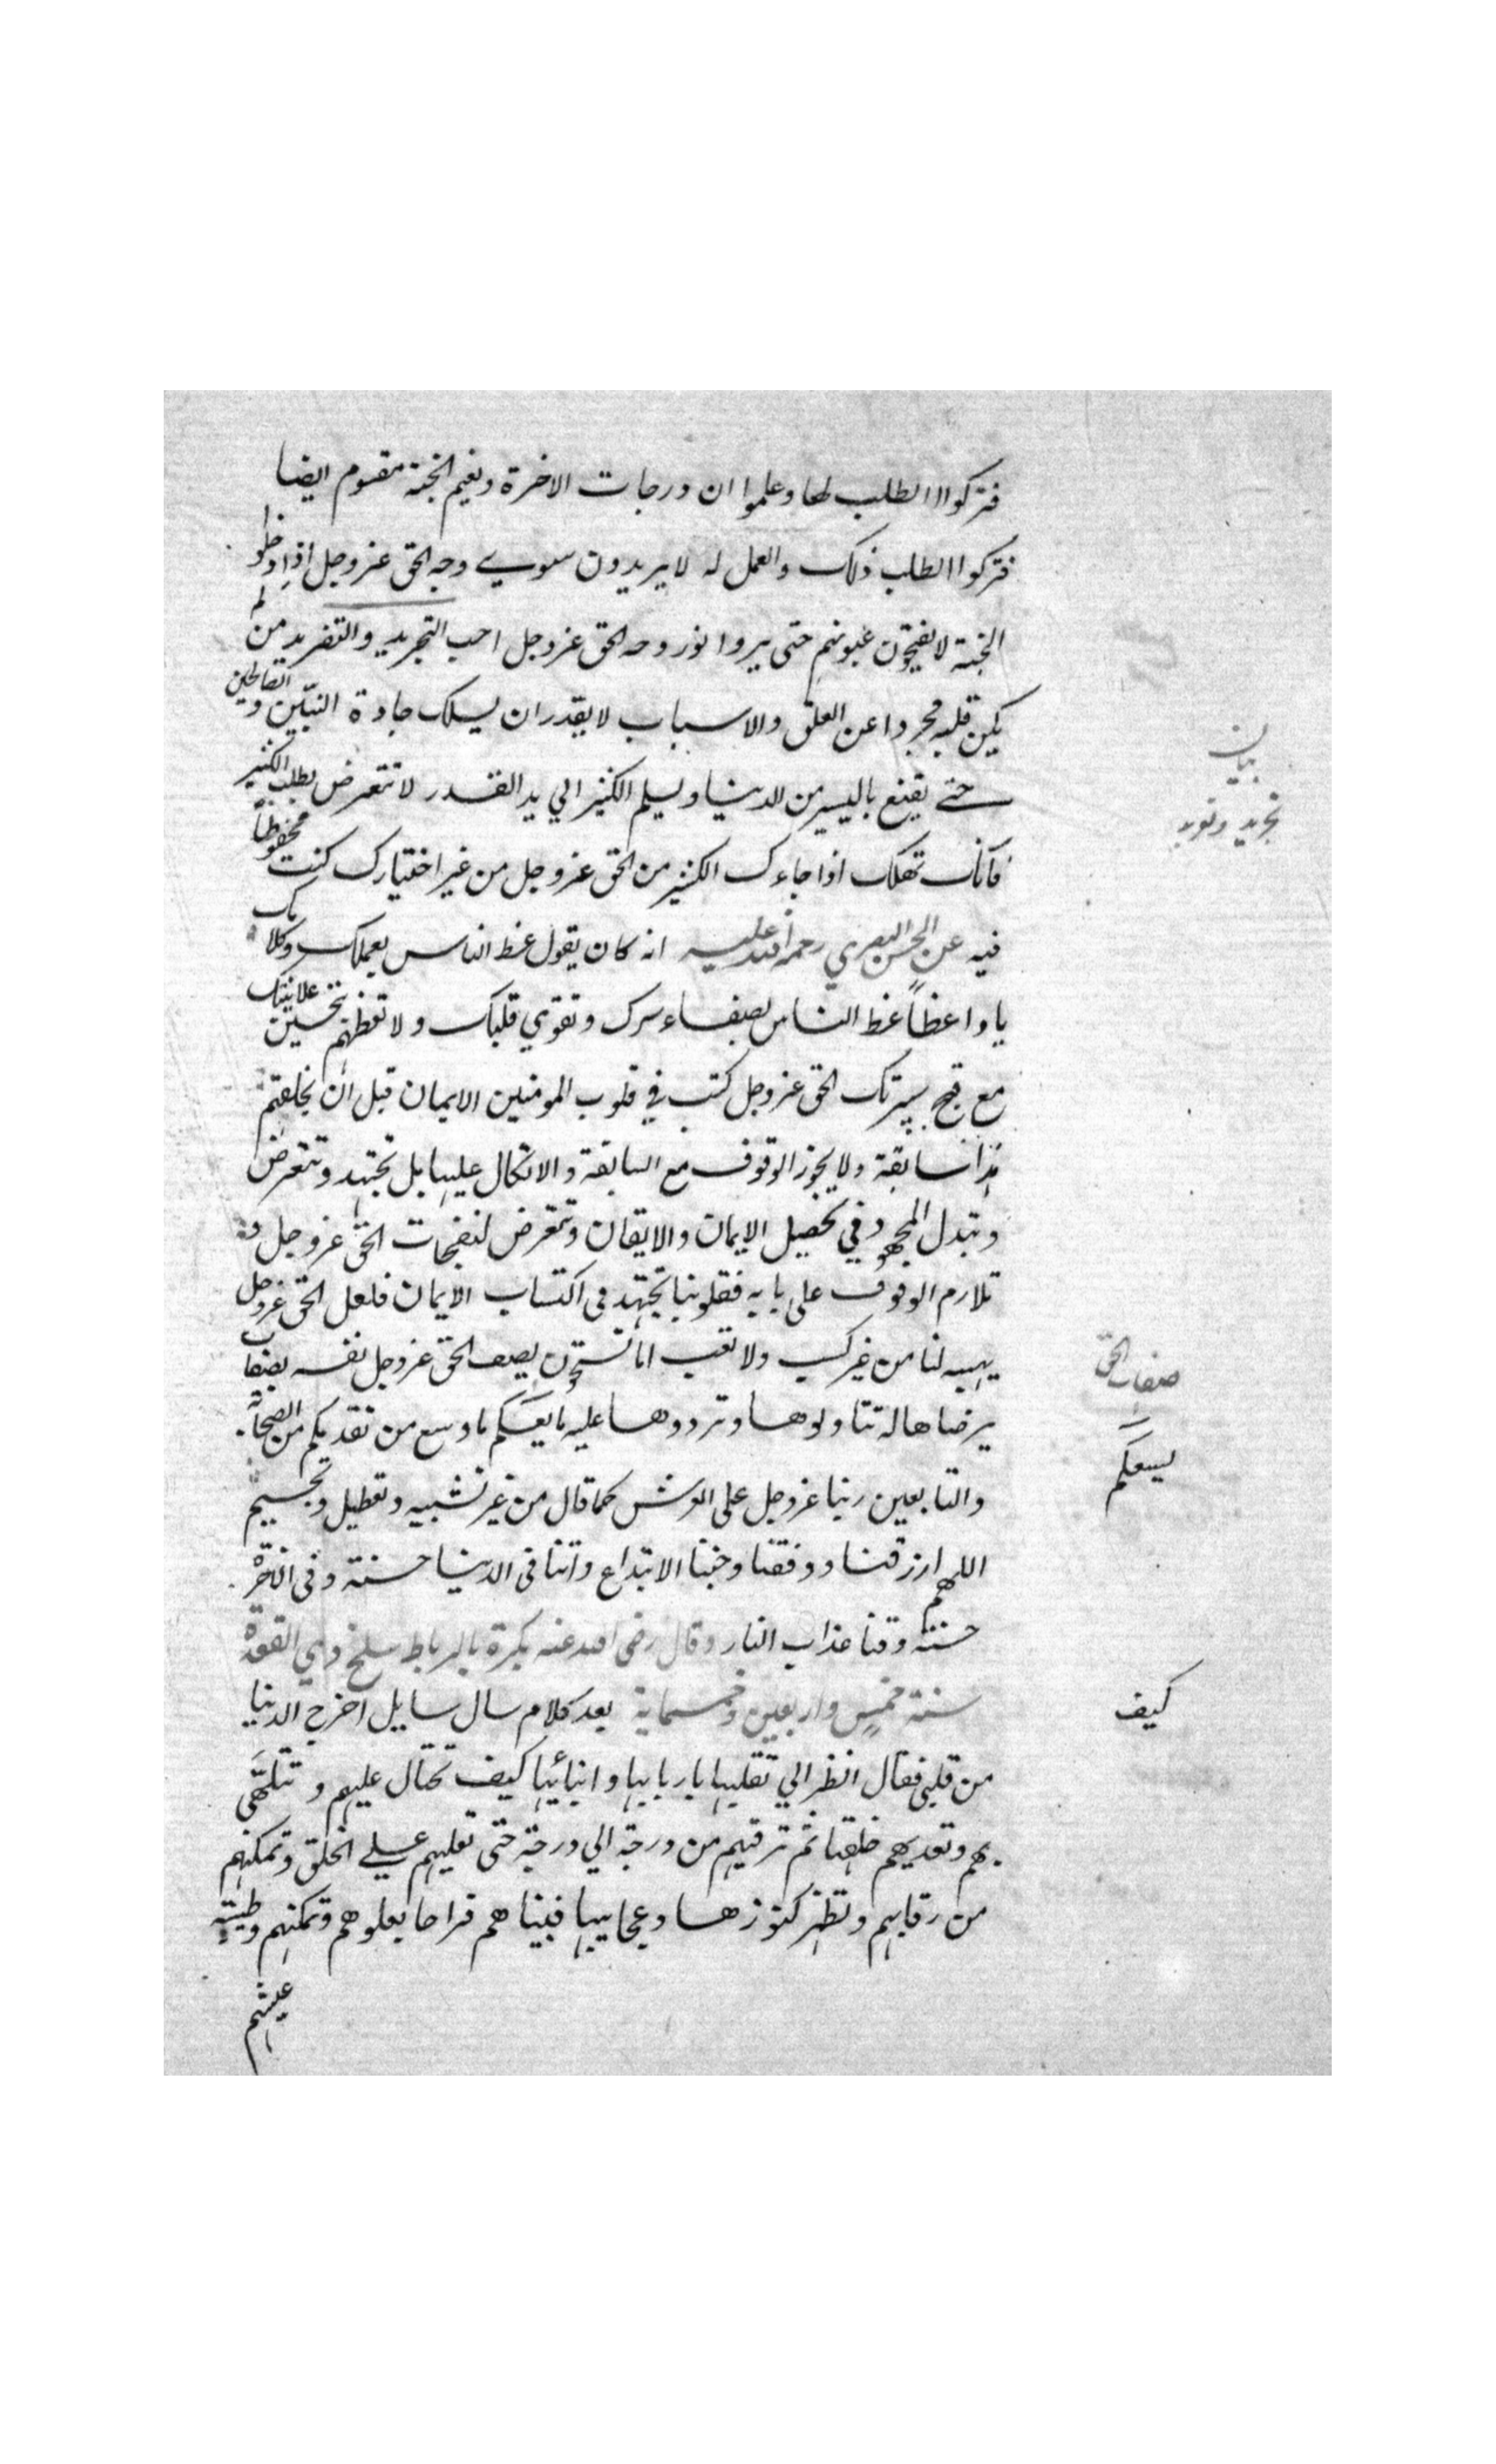 فتركوا الطلب لها وعلموا ان درجات الاخرة ونعيم الجنة مقسوم ايضا
فتركوا الطلب ذلك والعمل له لا يريدون سوي وجه الحق عز وجل اذا دخلوا
الجنة لا يفتحون عيونهم حتى يروا نور وجه الحق عز وجل احب التجريد والتفريد من لم
يكن قلبه مجردا عن العلق والاسباب لا يقدر ان يسلك جادة النبيّن والصالحين
حتے يقنع باليسير من الدنيا ويسلم الكثير الي يد القدر لا تتعرض بطلب الكثير
فانك تهلك اذا جاءك الكثير من الحق عز وجل من غير اختيارك كنت محفوظاً
فيه عن الحسن البصري رحمة الله عليه انه كان يقول عظ الناس بعملك وكلامك
يا واعظاً عظ الناس بصفاء سرك وتقوي قلبك ولا تعظهم بتحسين علانيتك
مع قبح سيرتك الحق عز وجل كتب في قلوب المومنين الايمان قبل ان يخلقهم
هذا سابقة ولا يجوز الوقوف مع السابقة والاتكال عليها بل تجتهد وتتعرض
وتبذل المجهود في تحصيل الايمان والايقان وتتعرض لنفحات الحق عز وجل و
تلازم الوقوف على بابه فقلوبنا تجتهد في اكتساب الايمان فلعل الحق عز وجل
يهبه لنا من غير كسب ولا تعب اما تستحون يصف الحق عز وجل نفسه بصفات
يرضاها له تتاولوها وتردوها عليه ما يعسكم ما وسع من تقديكم من الصحابة
والتابعين ربنا عز وجل على العرش كما قال من غير تشبيه وتعطيل وتجسيم
اللهم ارزقنا ووفقنا وجنبنا الابتداع واتنا فى الدنيا حسنة وفى الاخرة
حسنة وقنا عذاب النار وقال رضى الله عنه بكرة بالرباط سلخ ذي القعدة
سنة خمس واربعين وخمسماية بعد كلام سال سايل اخرج الدنيا
من قلبي فقال انظر الي تقلبها باربابها وابنائها كيف تحتال عليهم وتتلهى
بهم وتعديهم خلفها ثم ترقيهم من درجة الي درجة حتى تعليهم علے الخلق وتمكنهم
من رقابهم وتظهر كنوزها وعجايبها فبينا هم فراحا بعلوهم وتمكنهم وطيبة
عيشهم
بيان
تجريد وتفريد
صفات الحق
يسعكم
كيف